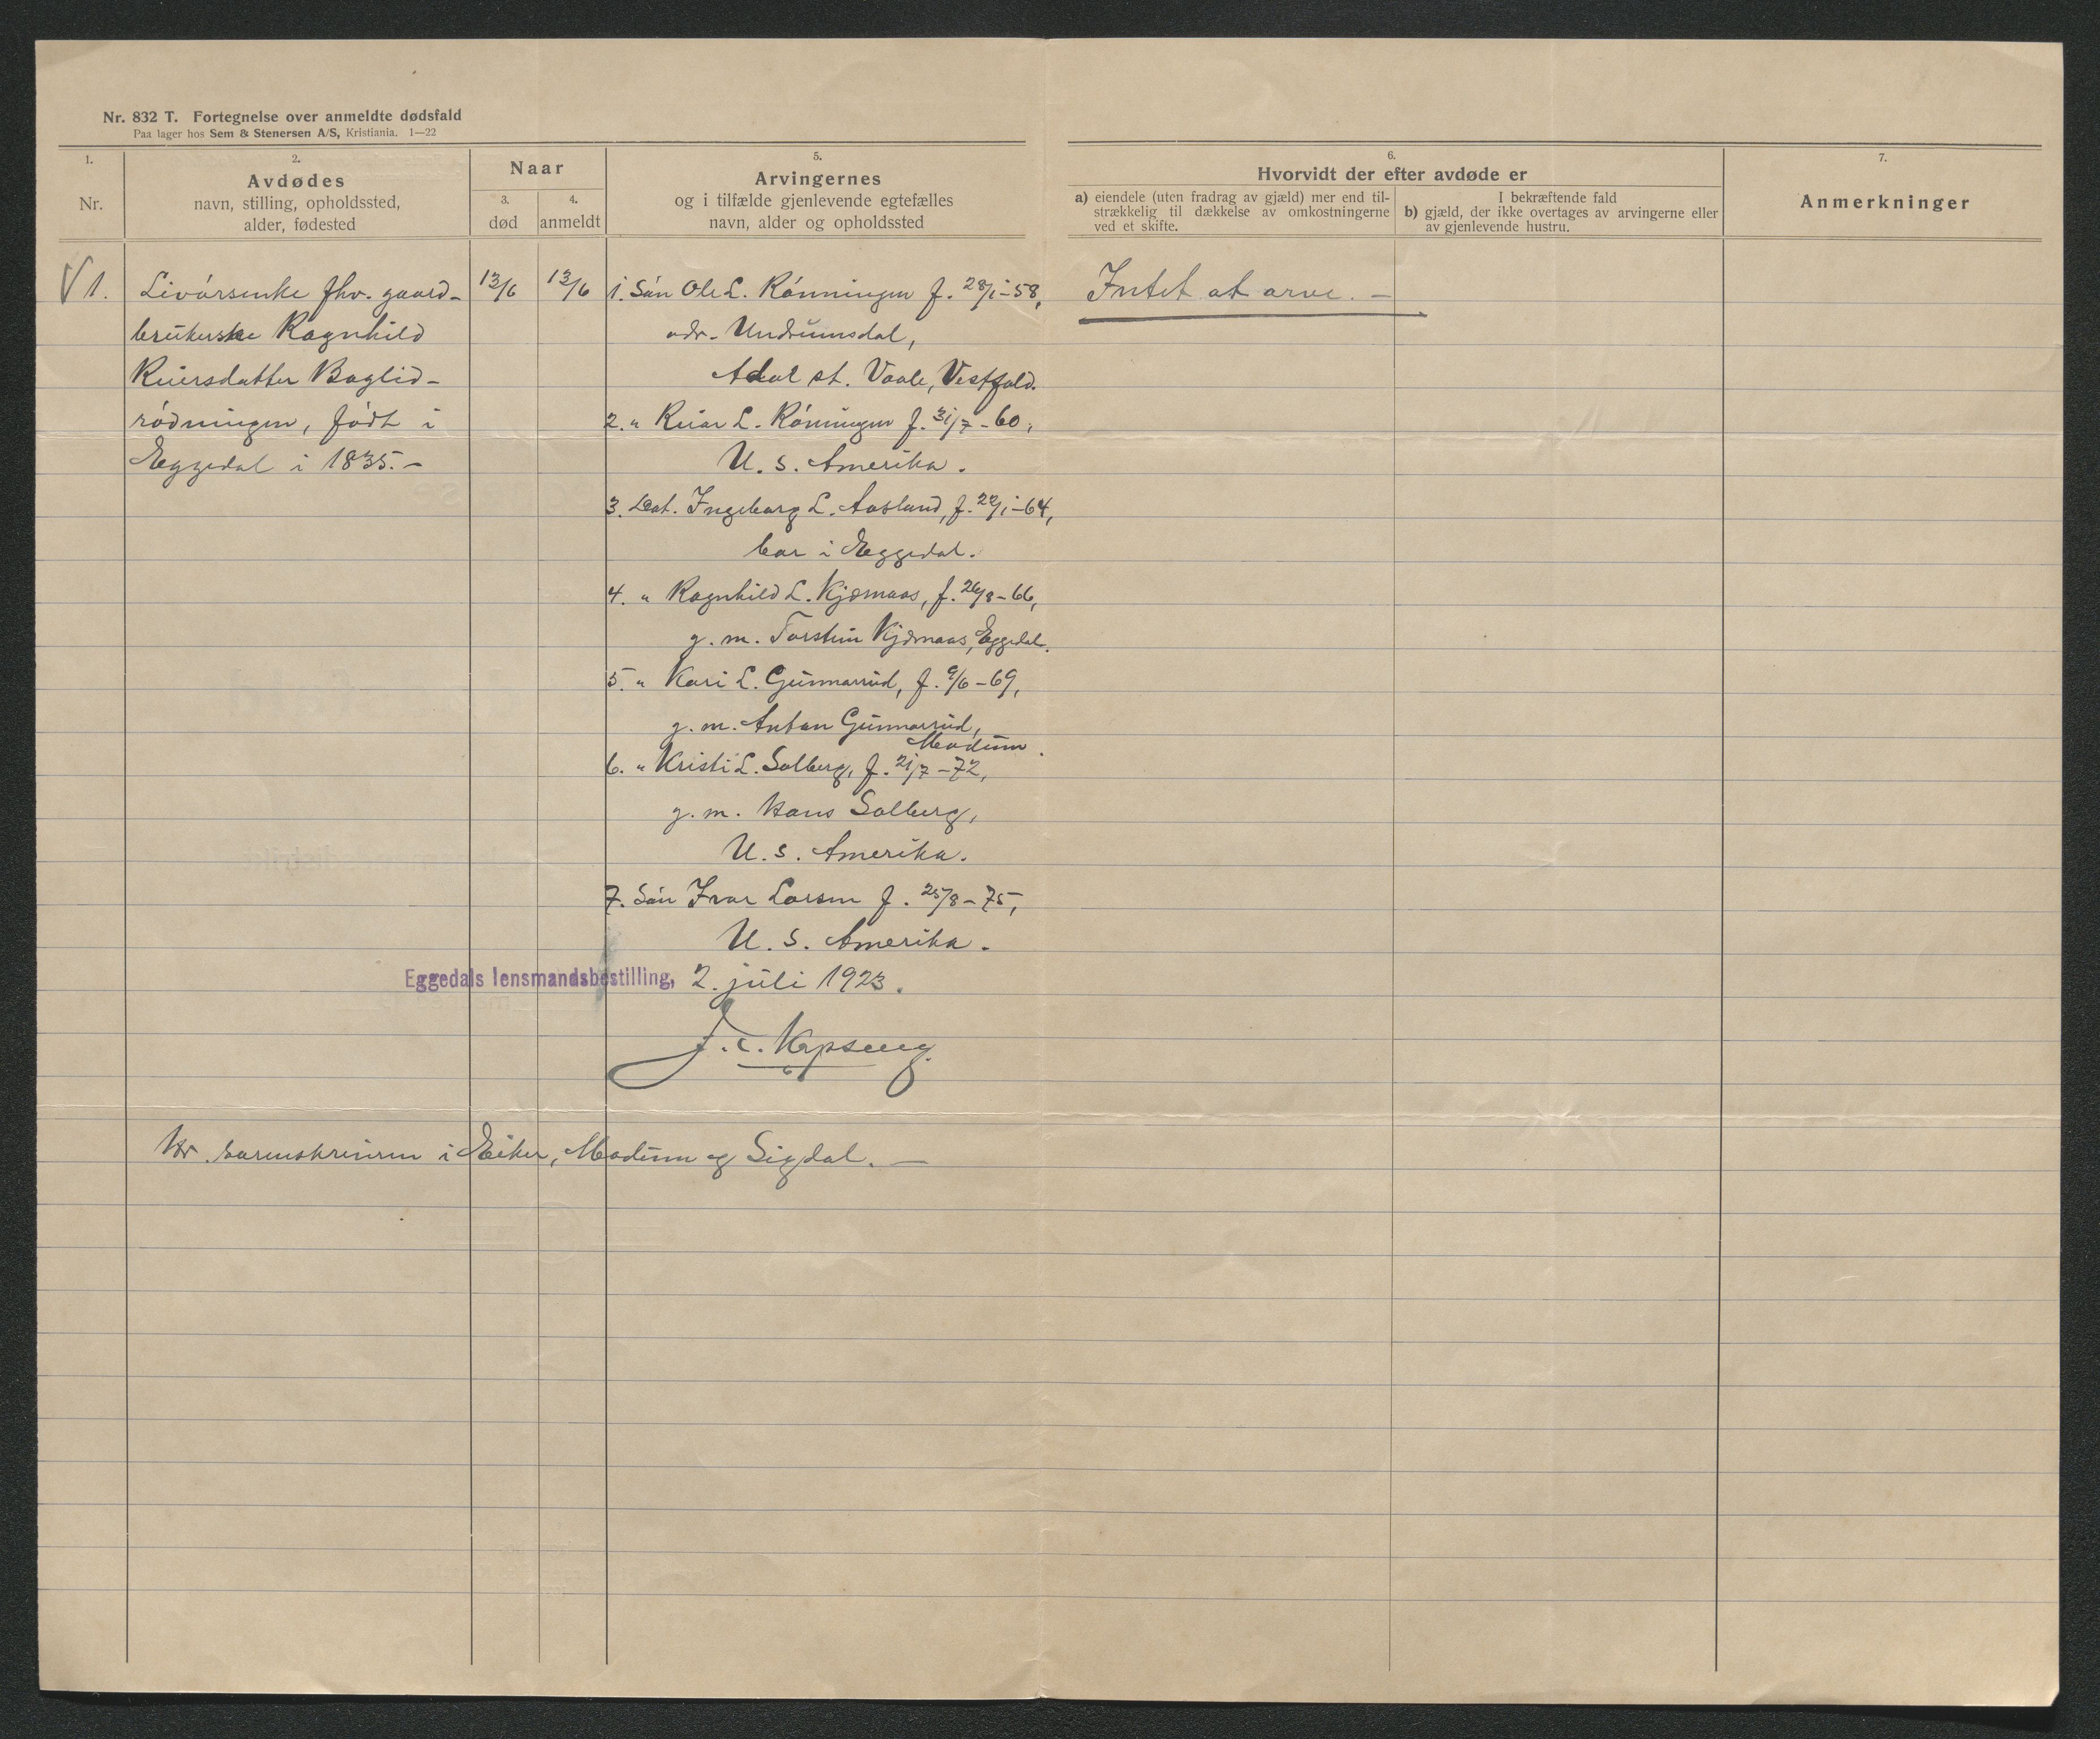 Nr. 832 T. Fortegnelse over anmeldte dødsfald
Paa lager hos Sem & Stenersen A/S, Kristiania. 1—22
1.
Nr.
2.
Avdødes
navn, stilling, opholdssted,
alder, fødested
Naar
3.
død
4.
anmeldt
5.
Arvingernes
og i tilfælde gjenlevende egtefælles
navn, alder og opholdssted
6.
Hvorvidt der efter avdøde er
a) eiendele (uten fradrag av gjæld) mer end til-
strækkelig til dækkelse av omkostningerne
ved et skifte.
I bekræftende fald
b) gjæld, der ikke overtages av arvingerne eller
av gjenlevende hustru.
7.
Anmerkninger
V 1.
Livórsenke fhv. gaard-
brukerske Ragnhild
Reiersdatter Baglid-
rødningen, født i
Eggedal i 1835. —
13/6
13/6
1. Søn Ole L. Rønningen f. 28/1-58,
adr. Undrumsdal,
Adal st. Vaale, Vestfold.
2. " Reiar L. Rønningen f. 31/7-60,
U. S. Amerika.
3. Dat. Ingeborg L. Aasland, f. 22/1-64,
bor i Eggedal.
4. " Ragnhild L. Kjømaas, f. 26/8-66,
g. m. Torstein Kjømaas, Eggedal.
5. " Kari L. Gunnarrud, f. 9/6-69,
g. m. Anton Gunnarrud,
Modum.
6. " Kristi L. Solberg, f. 21/7-72,
g. m. Hans Solberg,
U. S. Amerika.
7. Søn Ivar Larsen f. 25/8-75,
U. S. Amerika.
Intet at arve. —
Eggedals lensmandsbestilling, 2. juli 1923.
Hr. sorenskriveren i Eiker, Modum og Sigdal. —